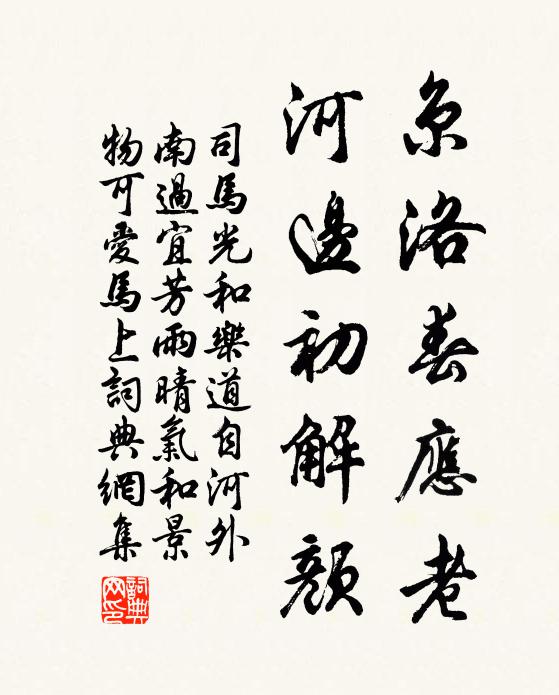 京洛春應老
河邊初解顏
司馬光和樂道自河外
南過宜芳雨晴氣和景
物可愛馬上詞典網集
詞典網印